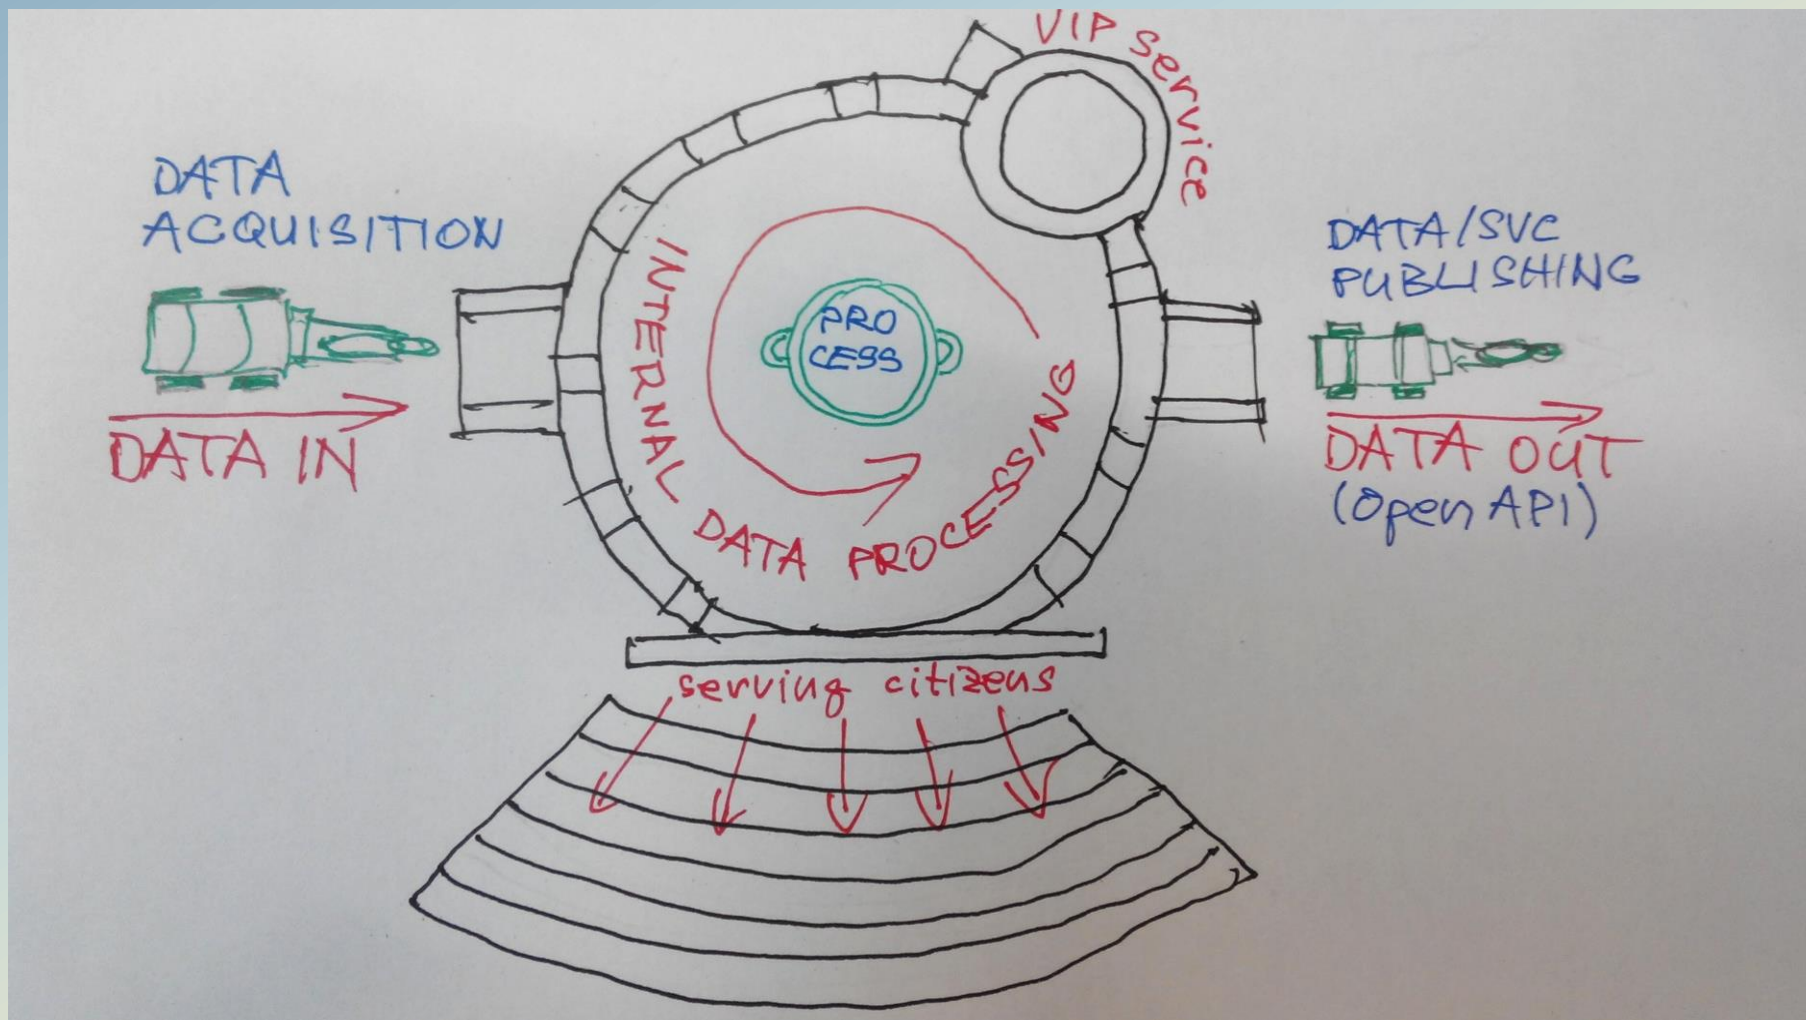 VIP Service
DATA
ACQUISITION
DATA IN
INTERNAL DATA PROCESSING
PRO
CESS
DATA/SVC
PUBLISHING
DATA OUT
(Open API)
serving citizens